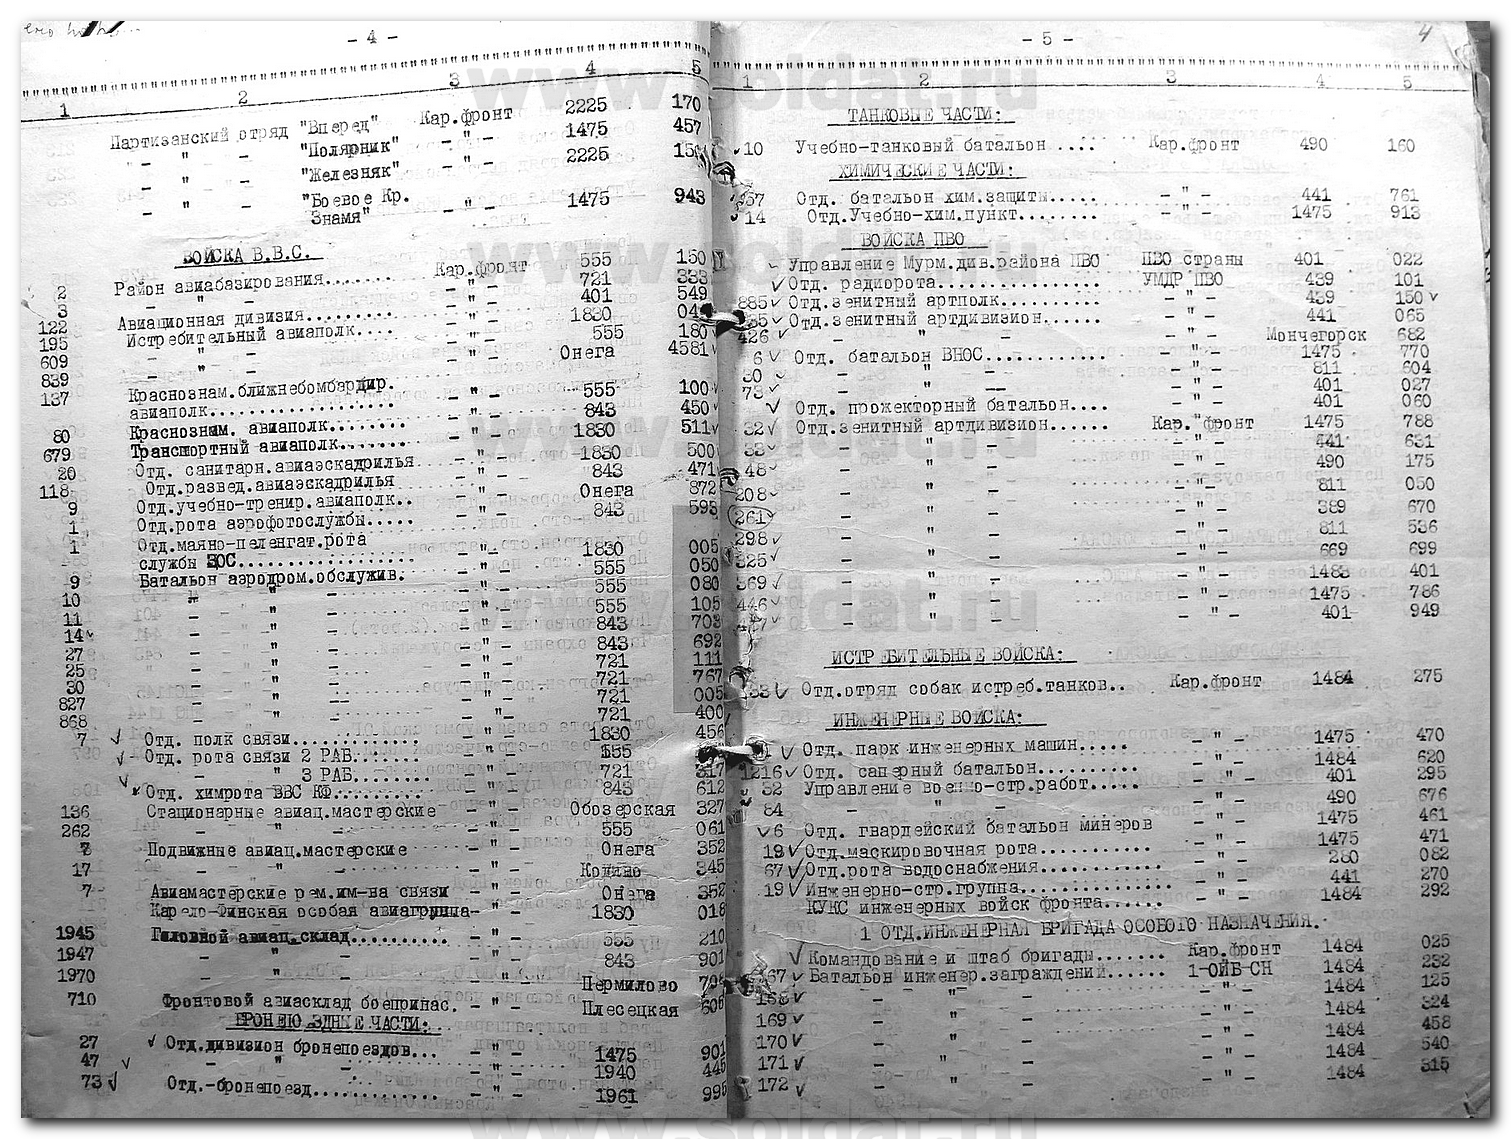 - 4 -
1 2 3 4 5
Партизанский отряд "Вперед" Кар.фронт 2225 170
- " - "Полярник" - " - 1475 457
- " - "Железняк" - " - 2225
- " - "Боевое Кр. Знамя" - " - 1475 943
ВОЙСКА В.В.С.
2 Район авиабазирования........ Кар.фронт 555 150
3 - " - - " - 721 333
122 Авиационная дивизия.......... - " - 401 549
195 Истребительный авиаполк..... - " - 1830
609 - " - - " - 555 180
839 - " - - " - Онега 4581
137 Краснознам.ближнебомбардир.
авиаполк................... - " - 555 100
80 Краснознам. авиаполк........ - " - 843 450
679 Транспортный авиаполк....... - " - 1830 511
20 Отд. санитарн.авиаэскадрилья - " - 1830 500
118 Отд.развед.авиаэскадрилья - " - 843 471
9 Отд.учебно-тренир.авиаполк.. - " - Онега 872
1 Отд.рота аэрофотослужбы..... - " - 843 593
1 Отд.маяно-пеленгат.рота
службы ЗОС.................. - " - 1830 005
9 Батальон аэродром.обслужив. - " - 555 050
10 - " - - " - 555 080
11 - " - - " - 555 105
14 - " - - " - 843 703
27 - " - - " - 843 692
25 - " - - " - 721 111
30 - " - - " - 721 767
827 - " - - " - 721 005
868 - " - - " - 721 400
7 Отд. полк связи............. - " - 1830 456
Отд. рота связи 2 РАБ....... - " - 555
- " 3 РАБ....... - " - 721 317
Отд. химрота ВВС КФ......... - " - 843 612
136 Стационарные авиац.мастерские - " - Обозерская 327
262 - " - - " - 555 061
3 Подвижные авиац.мастерские - " - Онега 352
17 - " - - " - Кодино 345
7 Авиамастерские рем.им-ва связи - " - Онега 352
Карело-Финская особая авиагруппа - " - 1830 018
1945 Головной авиац.склад.......... - " - 555 210
1947 - " - - " - 843 901
1970 - " - - " - Пермилово
710 Фронтовой авиасклад боеприпас. - " - Плесецкая 606
БРОНЕПОЕЗДНЫЕ ЧАСТИ:
27 Отд.дивизион бронепоездов... - " - 1475 901
47 - " - - " - 1940 445
73 Отд.-бронепоезд............. - " - 1961 995
- 5 -
4
1 2 3 4 5
ТАНКОВЫЕ ЧАСТИ:
10 Учебно-танковый батальон .... Кар.фронт 490 160
ХИМИЧЕСКИЕ ЧАСТИ:
Отд. батальон хим.защиты..... - " - 441 761
14 Отд.Учебно-хим.пункт......... - " - 1475 913
ВОЙСКА ПВО
Управление Мурм.див.района ПВО ПВО страны 401 022
Отд. радиорота................. УМДР ПВО 439 101
885 Отд.зенитный артполк........... - " - 439 150
Отд.зенитный артдивизион...... - " - 441 065
426 - " - - " - Мончегорск 682
6 Отд. батальон ВНОС............ - " - 1475 770
30 - " - - " - 811 604
73 - " - - " - 401 027
Отд. прожекторный батальон.... - " - 401 060
32 Отд.зенитный артдивизион...... Кар.фронт 1475 788
33 - " - - " - 441 631
48 - " - - " - 490 175
208 - " - - " - 811 050
261 - " - - " - 389 670
298 - " - - " - 811 536
325 - " - - " - 669 699
369 - " - - " - 1483 401
446 - " - - " - 1475 786
- " - - " - 401 949
ИСТРЕБИТЕЛЬНЫЕ ВОЙСКА:
Отд.отряд собак истреб.танков.. Кар.фронт 1484 275
ИНЖЕНЕРНЫЕ ВОЙСКА:
Отд. парк инженерных машин..... - " - 1475 470
1216 Отд. саперный батальон......... - " - 1484 620
32 Управление военно-стр.работ..... - " - 401 295
84 - " - - " - 490 676
6 Отд. гвардейский батальон минеров - " - 1475 461
19 Отд.маскировочная рота........... - " - 1475 471
67 Отд.рота водоснабжения........... - " - 280 082
19 Инженерно-стр.группа............. - " - 441 270
КУКС инженерных войск фронта...... - " - 1484 292
1 ОТД.ИНЖЕНЕРНАЯ БРИГАДА ОСОБОГО НАЗНАЧЕНИЯ.
Командование и штаб бригады....... Кар.фронт 1484 025
Батальон инженер.заграждений...... 1-ОИБ СН 1484 232
168 - " - - " - 1484 125
169 - " - - " - 1484 324
170 - " - - " - 1484 458
171 - " - - " - 1484 540
172 - " - - " - 1484 315
www.soldat.ru
www.soldat.ru
www.soldat.ru
www.soldat.ru
www.soldat.ru
www.soldat.ru
www.soldat.ru